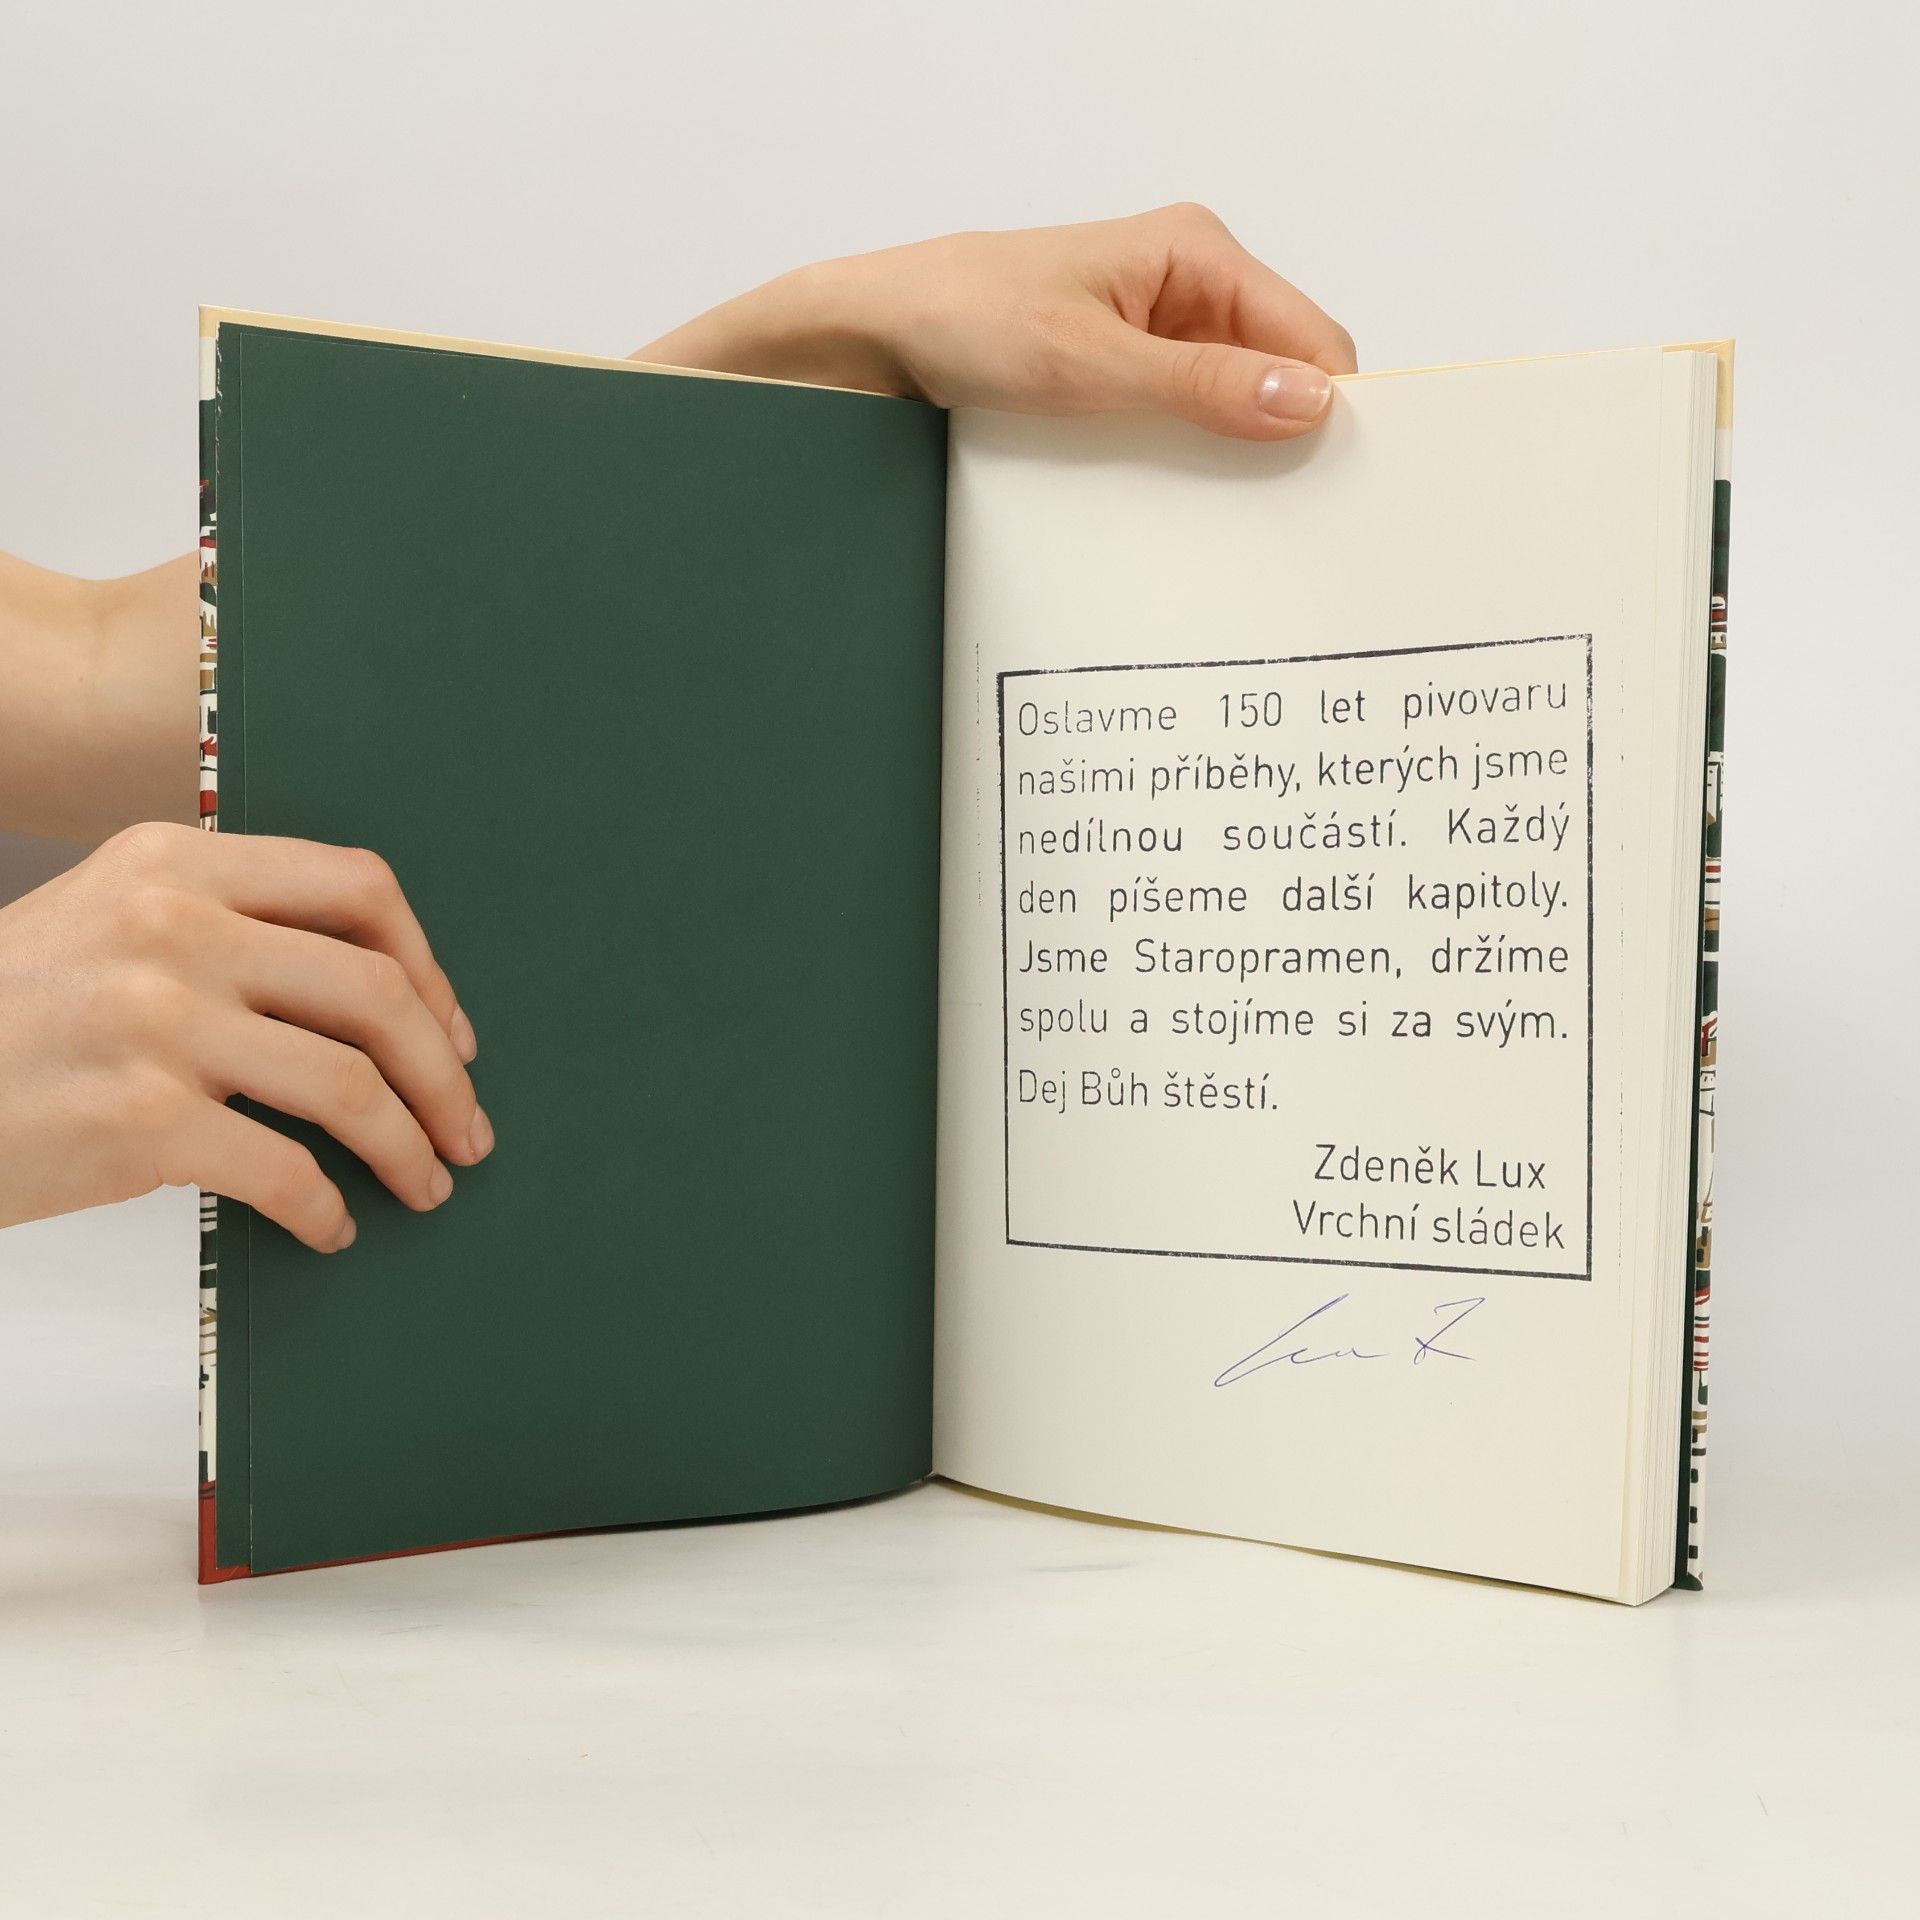 Oslavme 150 let pivovaru
našimi příběhy, kterých jsme
nedílnou součástí. Každý
den píšeme další kapitoly.
Jsme Staropramen, držíme
spolu a stojíme si za svým.
Dej Bůh štěstí.
Zdeněk Lux
Vrchní sládek